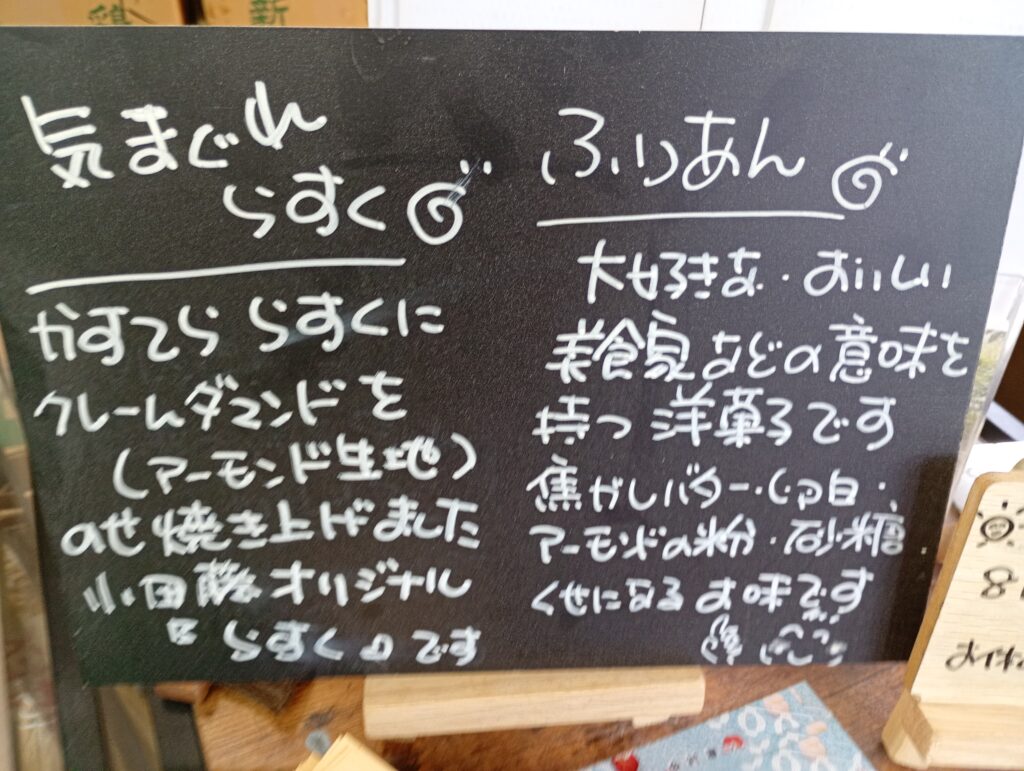 気まぐれ
らすく
かすてら らすくに
クレームダマンドを
(アーモンド生地)
のせ焼き上げました
小田藤オリジナル
『らすく』です
ふりあん
大好きな・おいしい
美食家などの意味を
持つ 洋菓子です
焦がしバター・卵白・
アーモンドの粉・砂糖
くせになるお味です